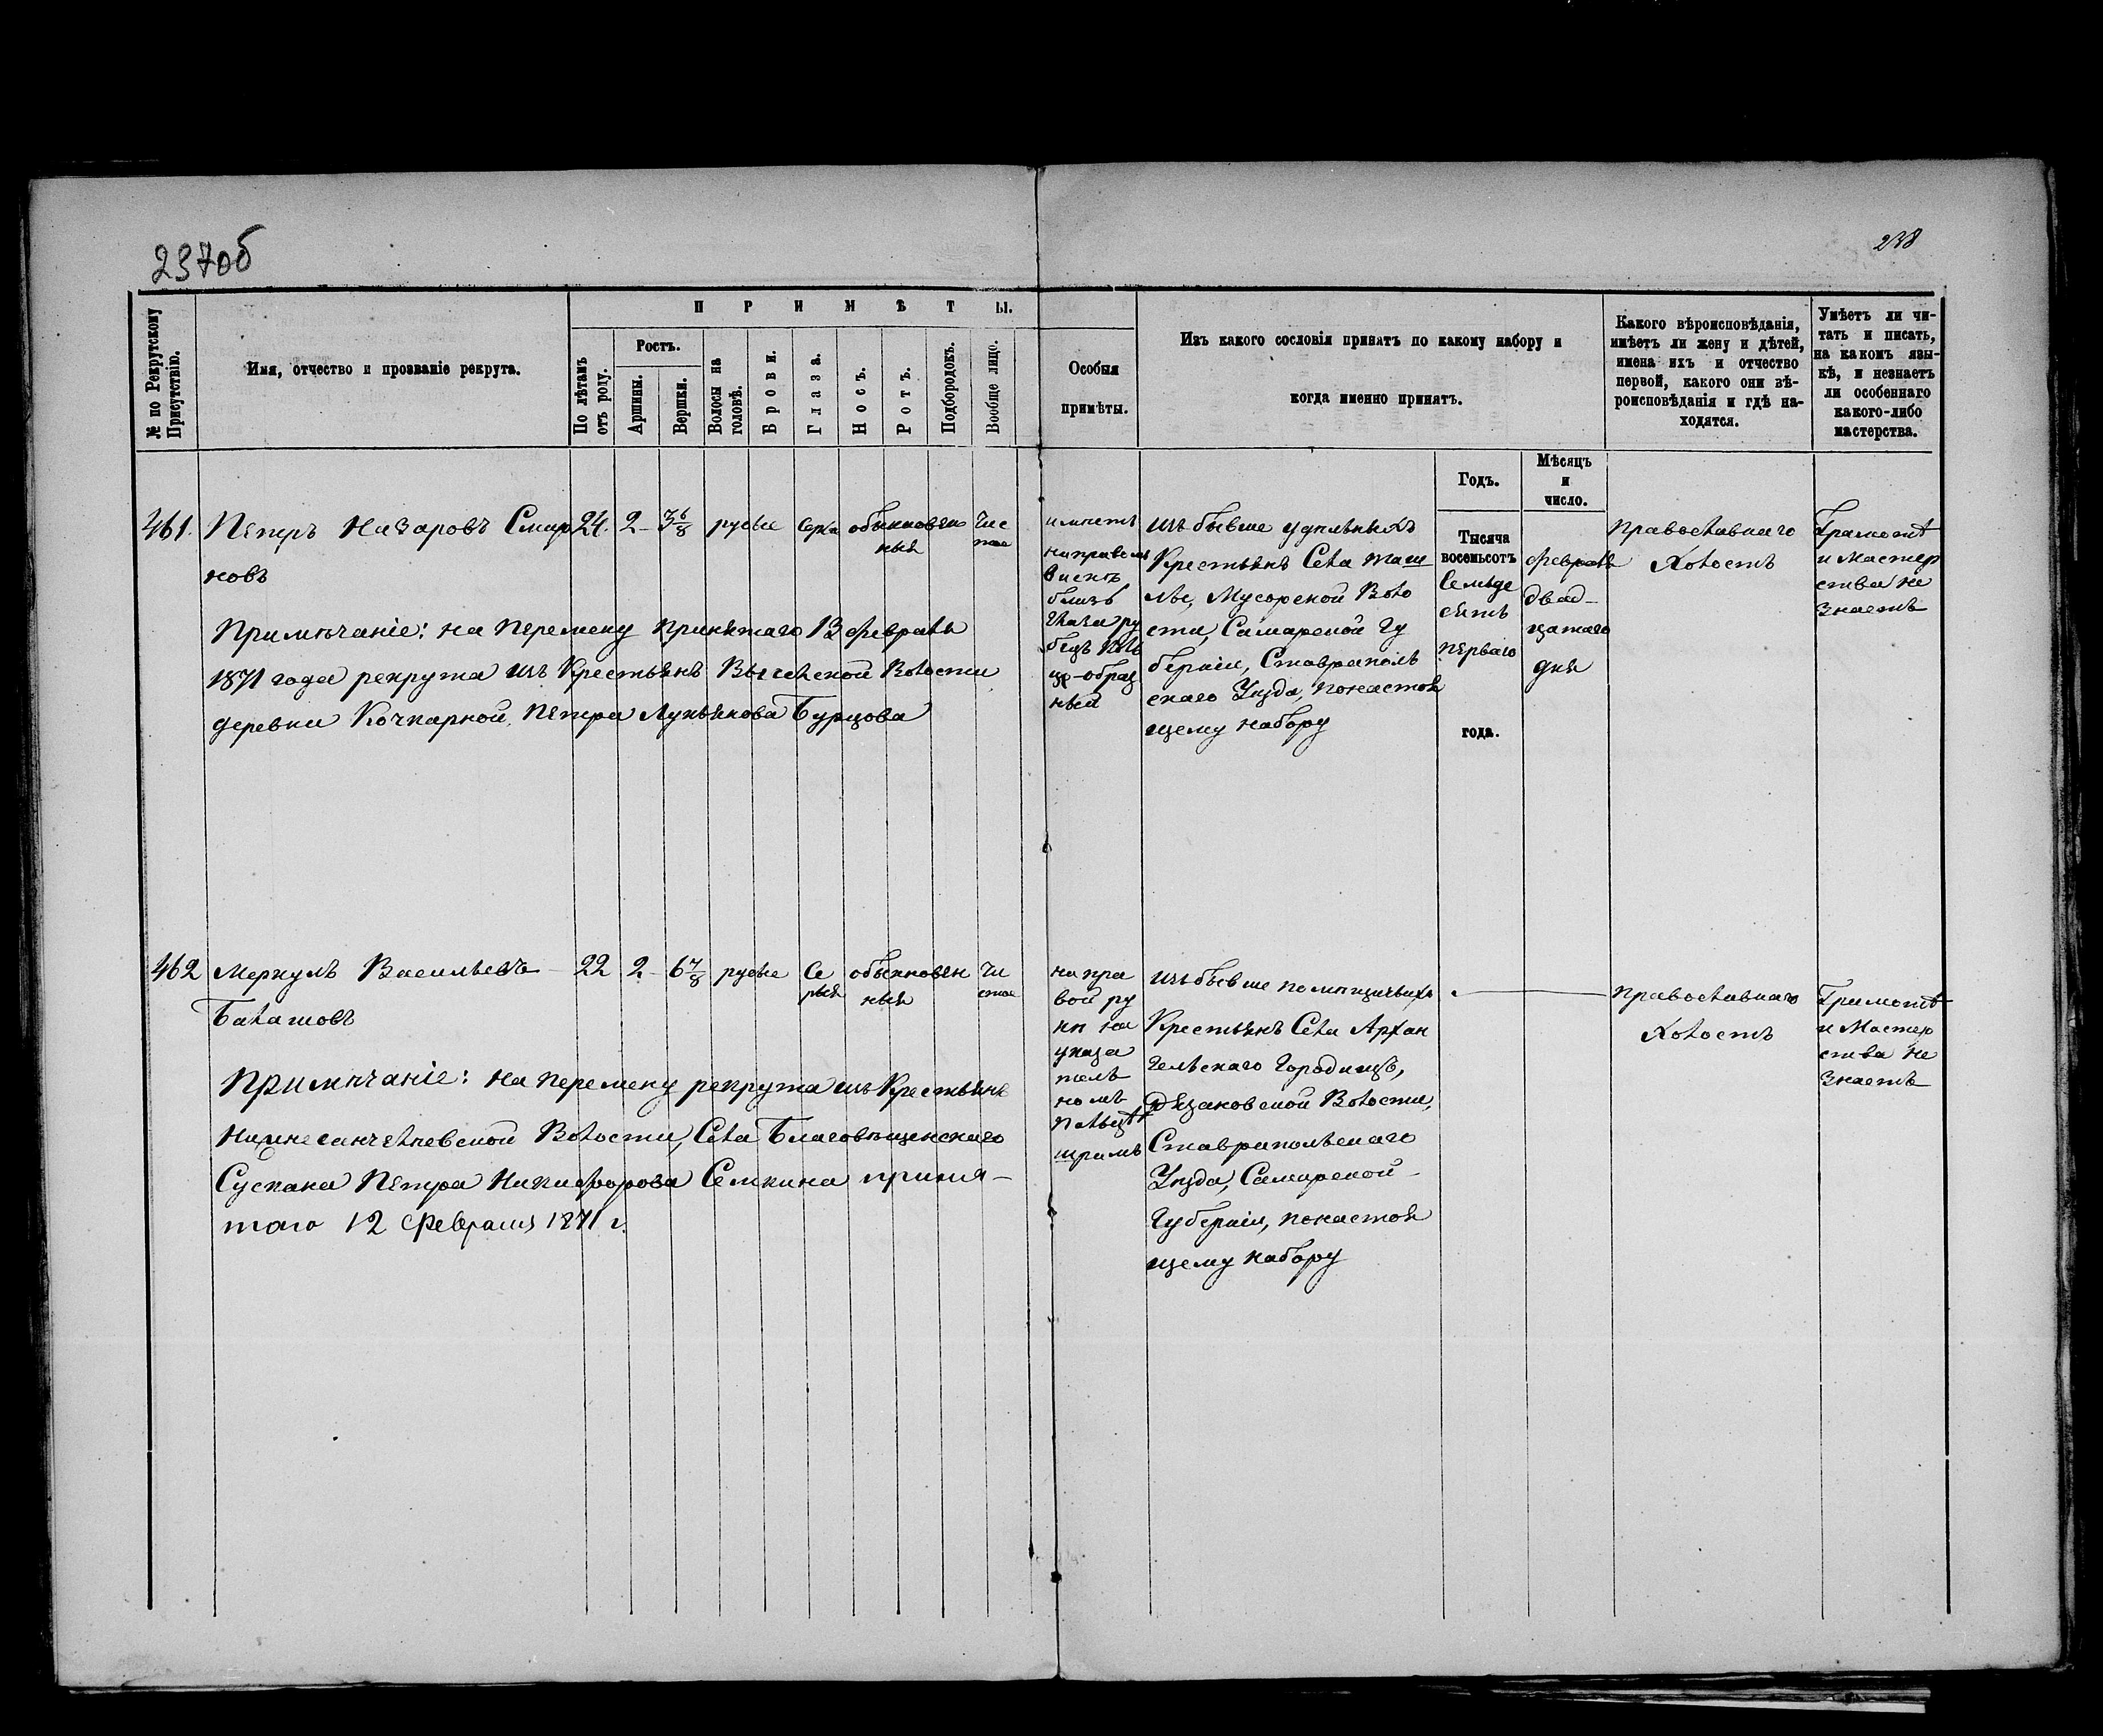 237об
238
№ по Рекрутскому Присутствію.
Имя, отчество и прозваніе рекрута.
ПРИМѢТЫ.
По лѣтамъ отъ роду.
Ростъ.
Аршины.
Вершки.
Волосы на головѣ.
Брови.
Глаза.
Носъ.
Ротъ.
Подбородокъ.
Вообще лицо.
Особыя
примѣты.
Изъ какого сословія принятъ по какому набору и
когда именно принятъ.
Какого вѣроисповѣданія,
имѣетъ ли жену и дѣтей,
имена ихъ и отчество
первой, какого они вѣ-
роисповѣданія и гдѣ на-
ходятся.
Умѣетъ ли чи-
тать и писать,
на какомъ язы-
кѣ, и незнаетъ
ли особеннаго
какого-либо
мастерства.
Годъ.
Мѣсяцъ
и
число.
461. Петръ Назаровъ Смир
новъ
24. 2 - 3 6/8 русые серые обыкновен
ные
Чис
тое
Примѣчаніе: на перемену принятаго 13 февраля
1871 года рекрута изъ Крестьянъ Волости
деревни Кочкарной, Петра Лукьянова Бурцова
имѣетъ
на правомъ
вискѣ
близь
глаза ру
бецъ
образ
ный
изъ бывше удѣльныхъ
Крестьянъ Села Таш
лы, Мусорской Воло
сти, Самарской Гу
берніи, Ставрополь
скаго Уѣзда, понастоя
щему набору
Тысяча
восемьсотъ
Семьде
сятъ
перваго
года.
февраля
двад-
цатаго
дня
Православнаго
Холостъ
Грамотѣ
и Мастер
ства не
знаетъ
462 Меркулъ Васильевъ
Балашовъ
22 2 - 6 7/8 русые Се
рые
обыкновен
ные
Чи
стое
Примѣчаніе: на перемену рекрута изъ Крестьянъ
Нижнесанчелеевской Волости, Села Благовѣщенскаго
Сускана Петра Никифорова Семкина приня-
таго 12 Февраля 1871 г.
на пра
вой ру
кѣ на
указа
тель
номъ
пальцѣ
шрамъ
изъ бывше помѣщичьихъ
Крестьянъ Села Архан
гельскаго Городища,
Рязановской Волости,
Ставропольскаго
Уѣзда, Самарской
Губерніи, понастоя
щему набору
Православнаго
Холостъ
Грамотѣ
и Мастер
ства не
знаетъ